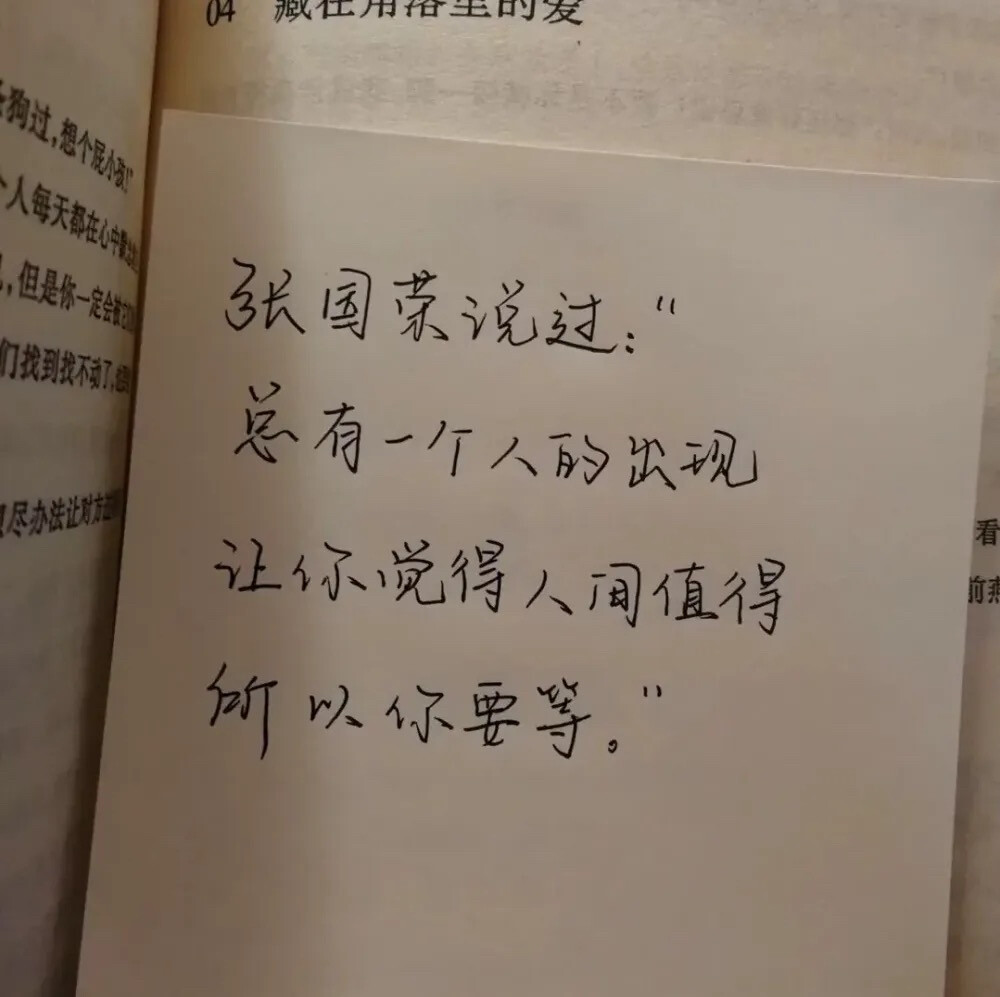 04 藏在角落里的爱
狗过,想个屁小孩!"
个人每天都在心中
,但是你一定会被它
们找到找不动了,
尽办法让对方
张国荣说过:"
总有一个人的出现
让你觉得人间值得
所以你要等。"
看
前燕